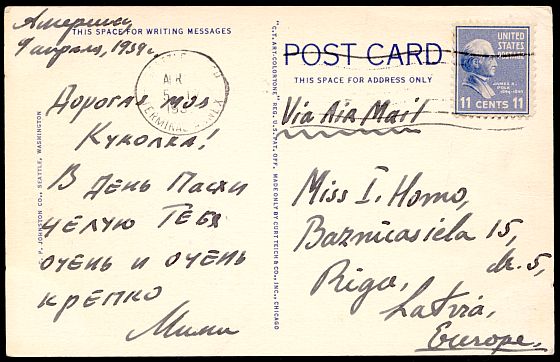 Америка,
9 апреля, 1939 г.
THIS SPACE FOR WRITING MESSAGES
Дорогая моя
Куколка!
В День Пасхи
целую Тебя
очень и очень
крепко
Мими
C. P. JOHNSTON CO., SEATTLE, WASHINGTON
"C.T. ART-COLORTONE" REG. U.S. PAT. OFF. MADE ONLY BY CURT TEICH & CO., INC., CHICAGO
APR
TERMINAL
POST CARD
THIS SPACE FOR ADDRESS ONLY
UNITED
STATES
POSTAGE
JAMES K.
POLK
11 CENTS 11
Via Air Mail
Miss I. Homo,
Baznicasiela 15,
dz. 5,
Riga,
Latvia,
Europe.